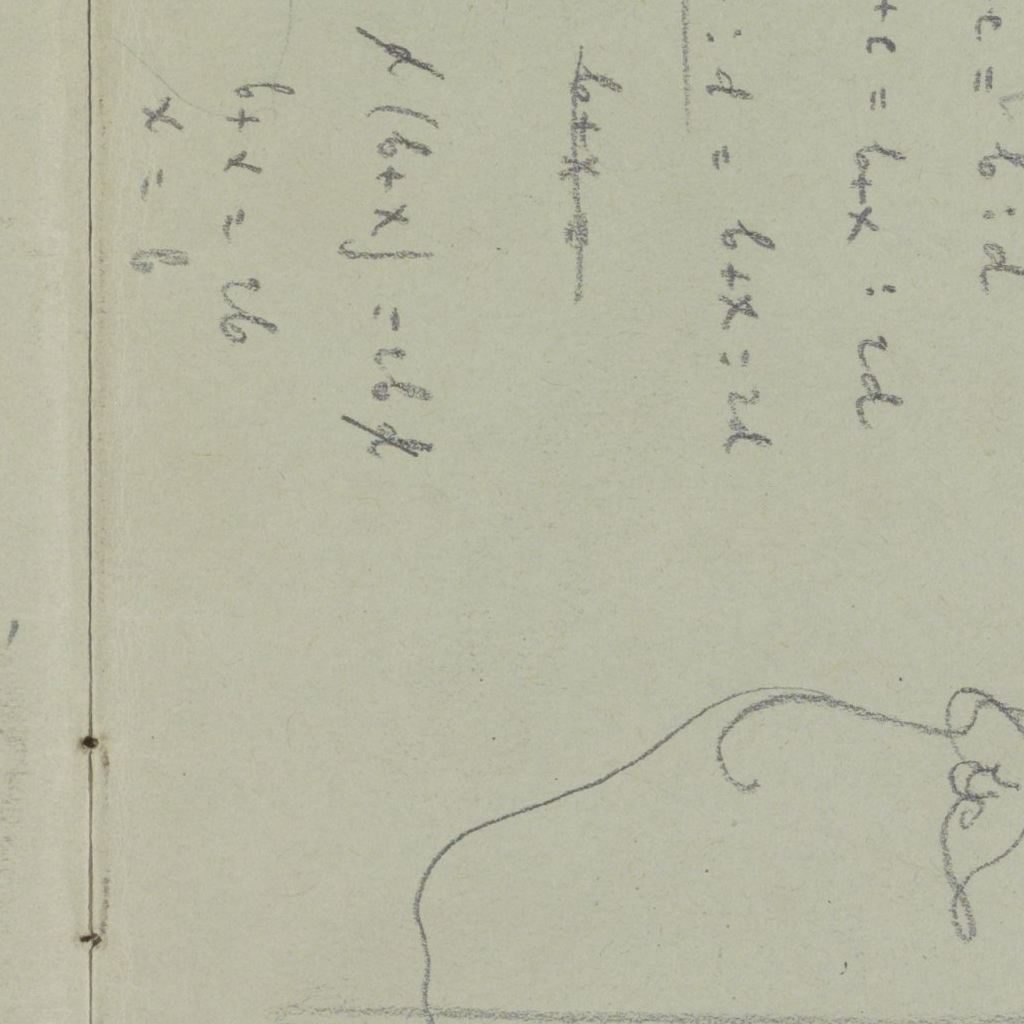 c = b : d
+c = b+x : 2d
: d = b+x : 2d
b+x =
d (b+x) = 2bd
b+x = 2b
x = b